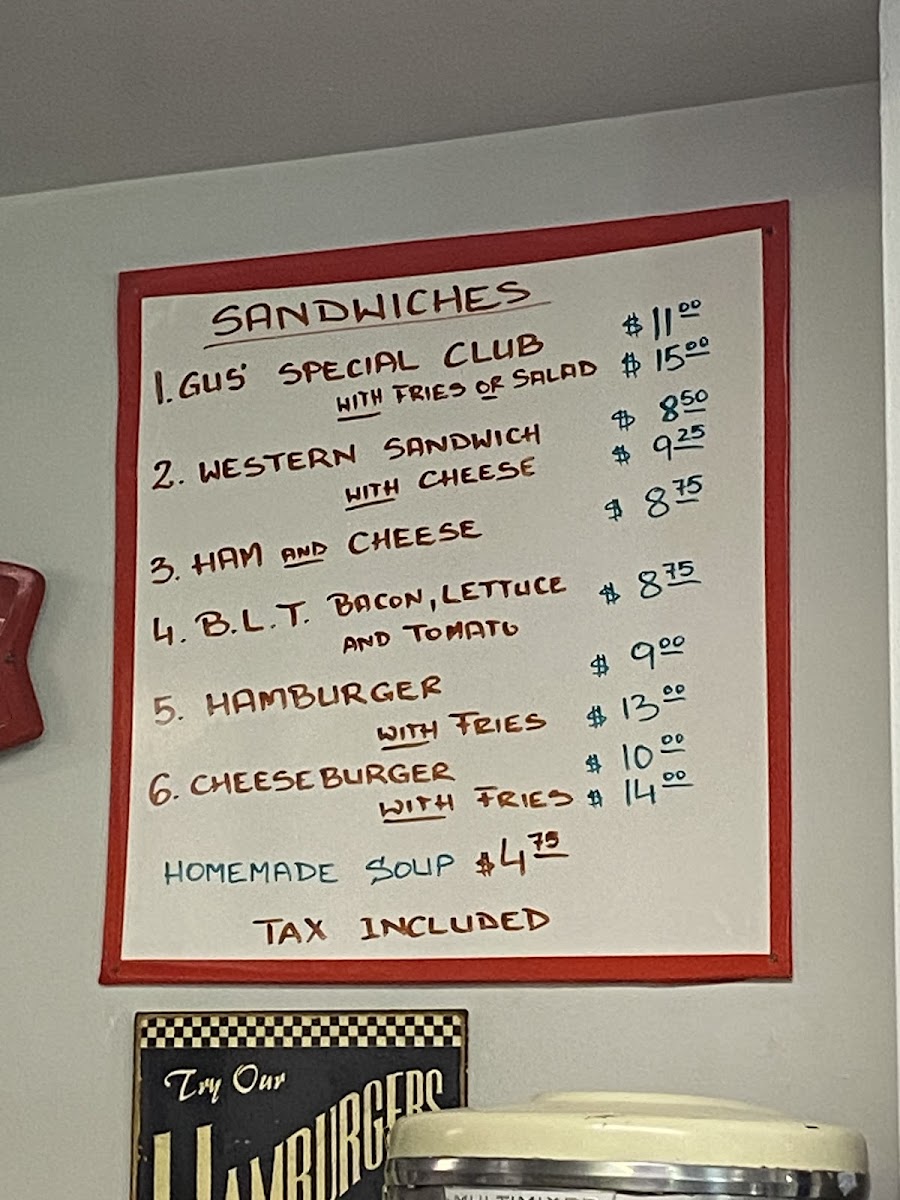 SANDWICHES
1. GUS' SPECIAL CLUB $11.00
WITH FRIES OR SALAD $15.00
2. WESTERN SANDWICH $8.50
WITH CHEESE $9.25
3. HAM AND CHEESE $8.75
4. B.L.T. BACON, LETTUCE $8.75
AND TOMATO
5. HAMBURGER $9.00
WITH FRIES $13.00
6. CHEESEBURGER $10.00
WITH FRIES $14.00
HOMEMADE SOUP $4.75
TAX INCLUDED
Try Our
HAMBURGERS
MULTIMIXER